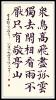 衆鳥高飛盡孤雲
獨去閑相看兩不
厭只有敬亭山